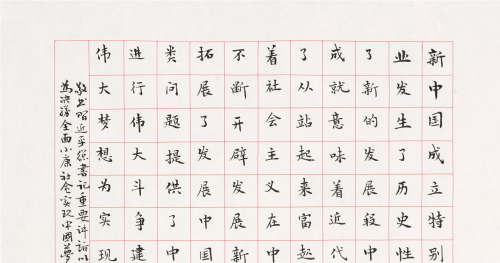 新中国成立特别
业发生了历史性
了新的发展段中
成就意味着近代
了从站起来富起
着社会主义在中
不断开辟发展新
拓展了发展中国
类问题提供了中
进行伟大斗争建
伟大梦想为实现
敬书習近平總書记重要讲话以
为决勝全面小康社会实现中國夢